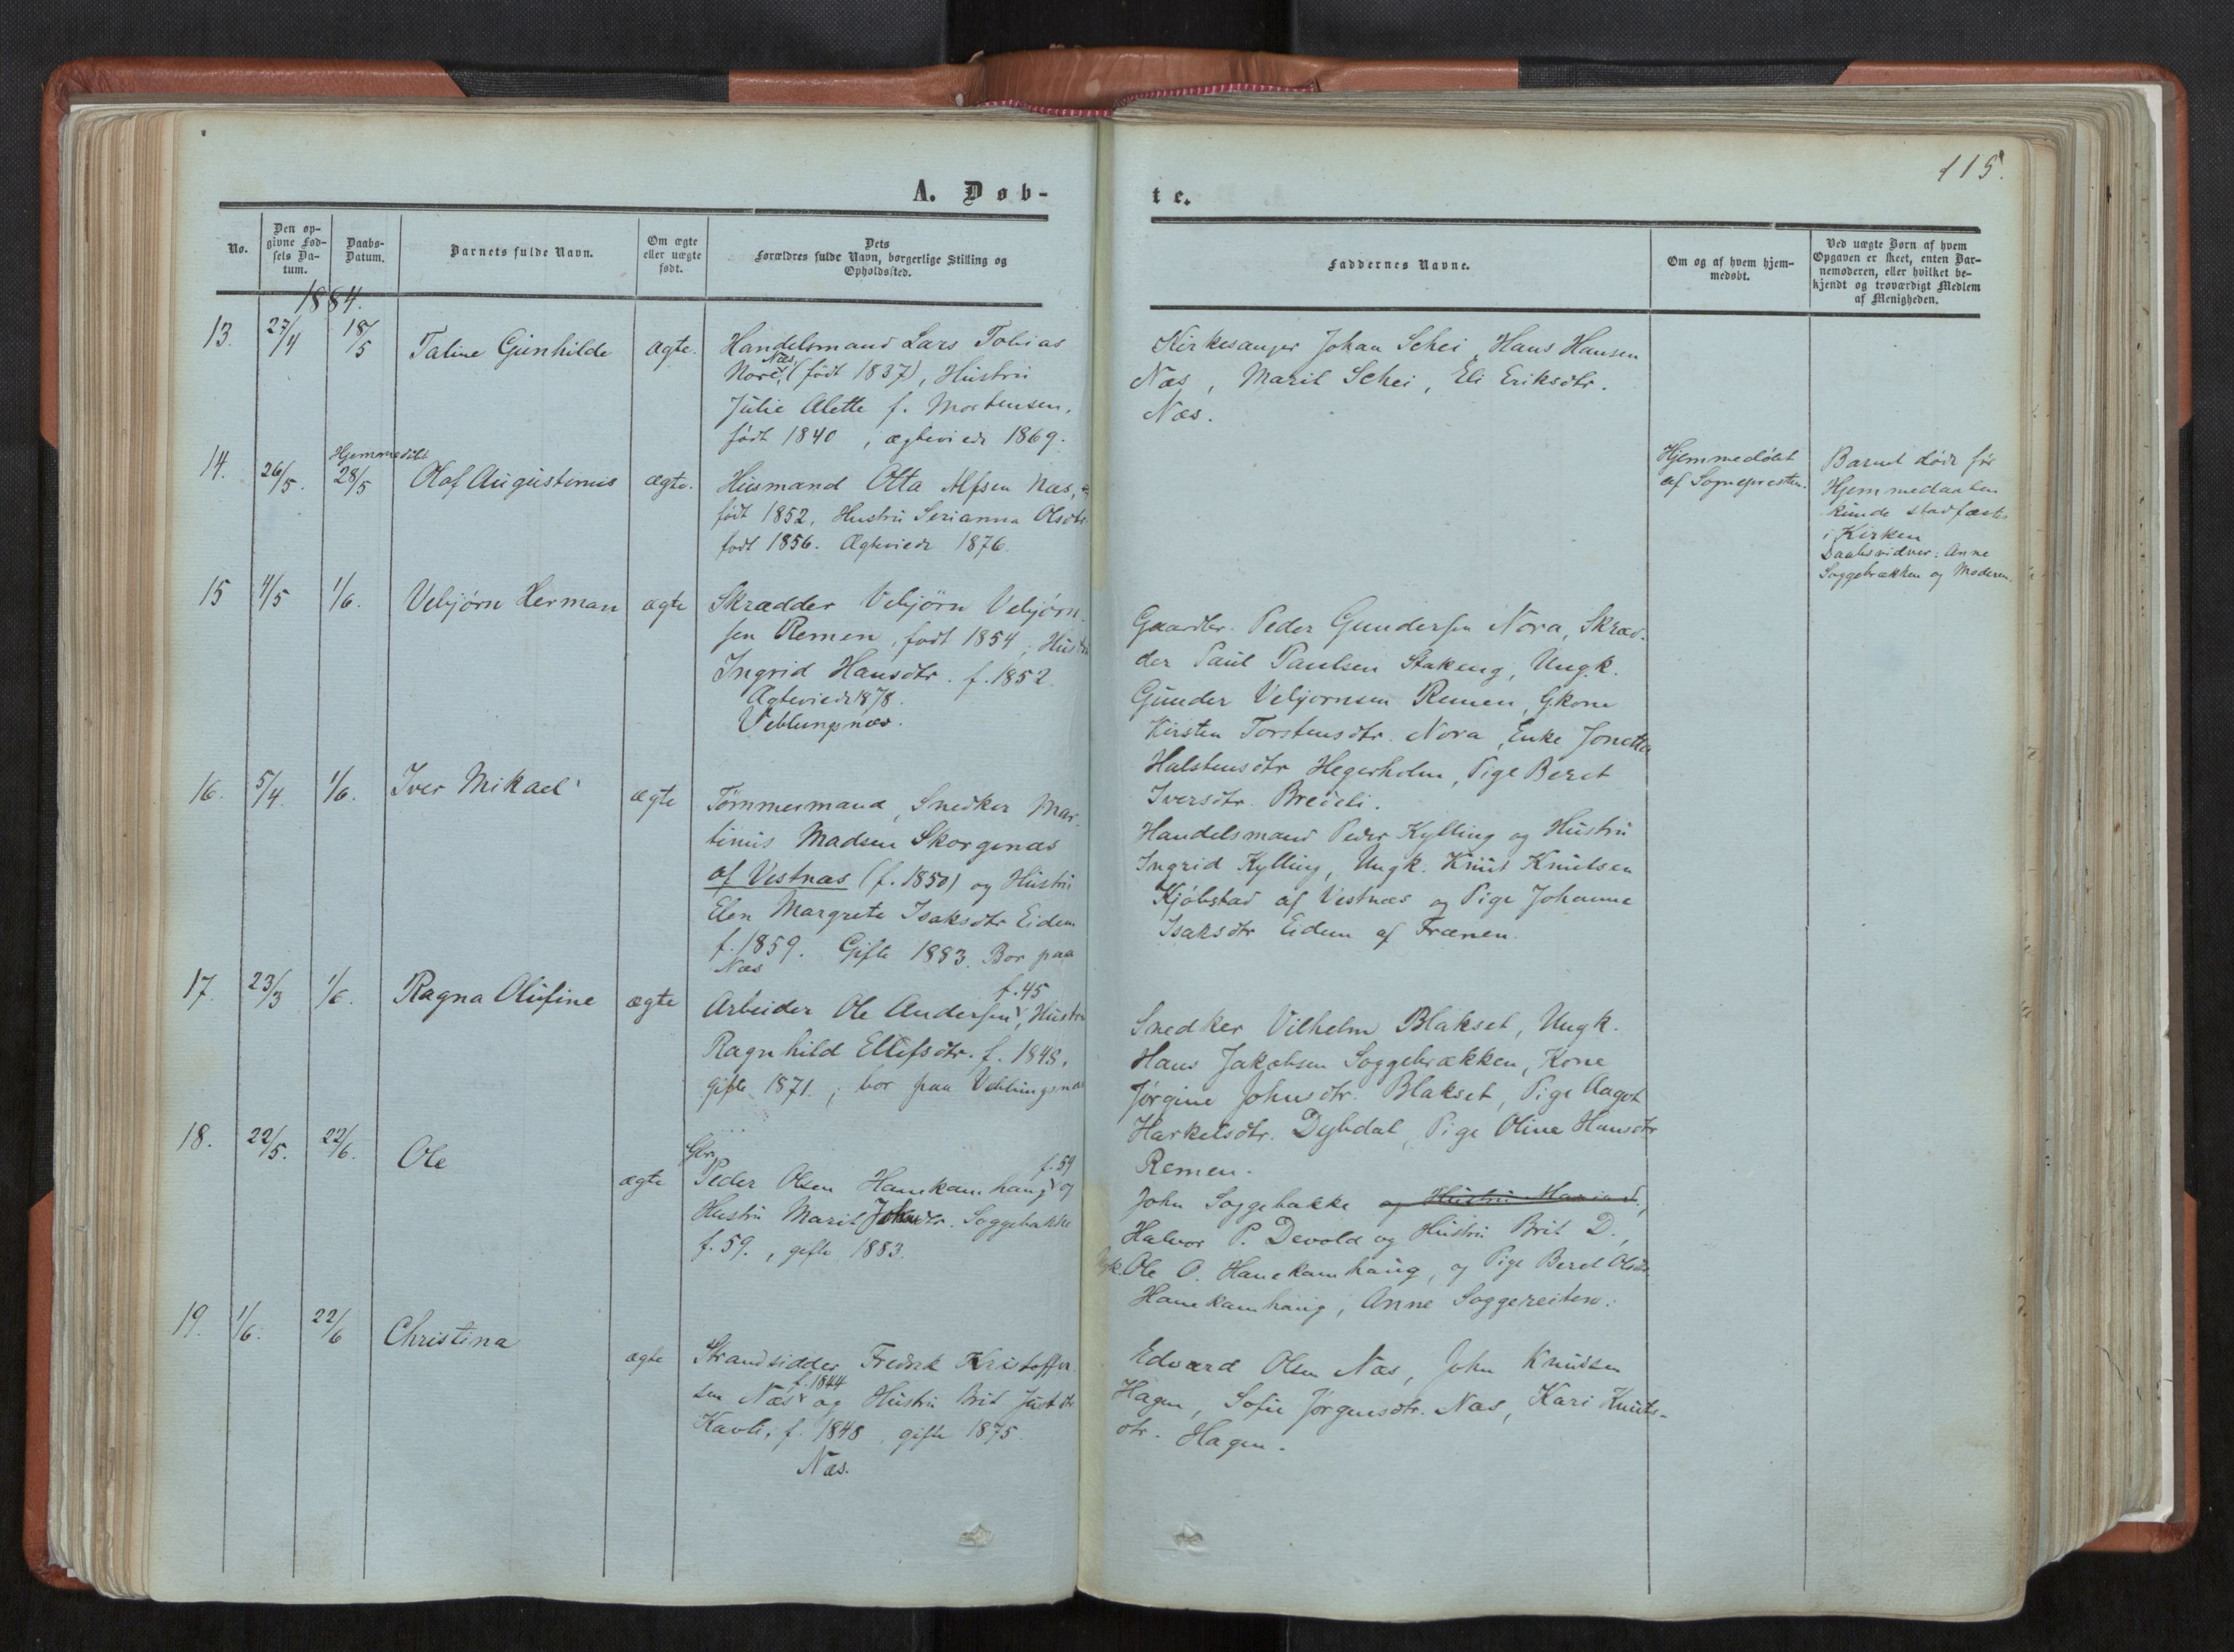 115.
A. Døb-
te.
No.
Den op-
givne Fød-
sels Da-
tum.
Daabs-
Datum.
Barnets fulde Navn.
Om ægte
eller uægte
født.
Dets
Forældres fulde Navn, borgerlige Stilling og
Opholdssted.
Faddernes Navne.
Om og af hvem hjem-
medøbt.
Ved uægte Børn af hvem
Opgaven er skeet, enten Bar-
nemoderen, eller hvilket be-
kjendt og troværdigt Medlem
af Menigheden.
1884.
13. 27/4 18/5 Taline Gunhilde ægte. Handelsmand Lars Tobias
Næs,
Nore, (født 1837), Hustru
Julie Alette f. Mortensen,
født 1840, ægteviede 1869.
Kirkesanger Johan Schei, Hans Hansen
Næs, Marit Schei, Eli Eriksdtr.
Næs.
Hjemmedøbt
14. 26/5. 28/5 Olaf Augustinus ægte. Husmand Otta Alfsen Næs,
født 1852, Hustru Serianna Olsdtr
født 1856. Ægteviede 1876.
Hjemmedøbt
af Sognepresten.
Barnet døde før
Hjemmedaaben
kunde stadfæstes
i Kirken
Daabsvidner: Anne
Soggebrækken og Moderen.
15 4/5 1/6. Vebjørn Herman ægte Skrædder Vebjørn Vebjørn-
sen Remen, født 1854, Hustru
Ingrid Hansdtr. f. 1852.
Ægteviede 1878.
Veblungsnæs.
Gaardbr. Peder Gundersen Nora, Skræd-
der Paul Paulsen Stakeng, Ungk.
Gunder Vebjørnsen Remen, Gkone
Kirsten Torstensdtr. Nora, Enke Jonetta
Halstensdtr Hegerholm, Pige Beret
Iversdtr. Bredeli.
16. 5/4. 1/6. Iver Mikael ægte Tømmermand, Snedker Mar-
tinus Madsen Skorgenæs
af Vestnæs (f. 1850) og Hustru
Elen Margrete Isaksdtr Eidem
f. 1859. Gifte 1883. Bor paa
Næs
Handelsmand Peder Kylling og Hustru
Ingrid Kylling, Ungk. Knut Knutsen
Kjøbstad af Vestnæs og Pige Johanne
Isaksdtr Eidem af Frænen.
17. 23/3 1/6. Ragna Olufine ægte Arbeider Ole Andersen, f. 45 Hustru
Ragnhild Ellefsdtr. f. 1848,
gifte 1871.; bor paa Veblungsnæs
Snedker Vilhelm Blakset, Ungk.
Hans Jakobsen Soggebrækken, Kone
Jørgine Johnsdtr. Blakset, Pige Aagot
Harkelsdtr. Dybdal, Pige Oline Hansdtr
Remen.
18. 22/5. 22/6. Ole ægte Gbr.
Peder Olsen Hanekamhaug f. 59 og
Hustru Marit Johnsdtr. Soggebakke
f. 59., gifte 1883.
John Soggebakke og Hustru Maria S.,
Halvor P. Devold og Hustru Brit D.,
Ungk. Ole O. Hanekamhaug, og Pige Beret Olsdtr.
Hanekamhaug, Anne Soggereiten.
19. 1/6. 22/6 Christina ægte Strandsidder Fredrik Kristoffer-
sen Næs f. 1844 og Hustru Brit Justdtr
Kavli, f. 1848, gifte 1875.
Næs.
Edvard Olsen Næs, John Knudsen
Hagen, Sofie Jørgensdtr. Næs, Kari Knuts-
dtr. Hagen.